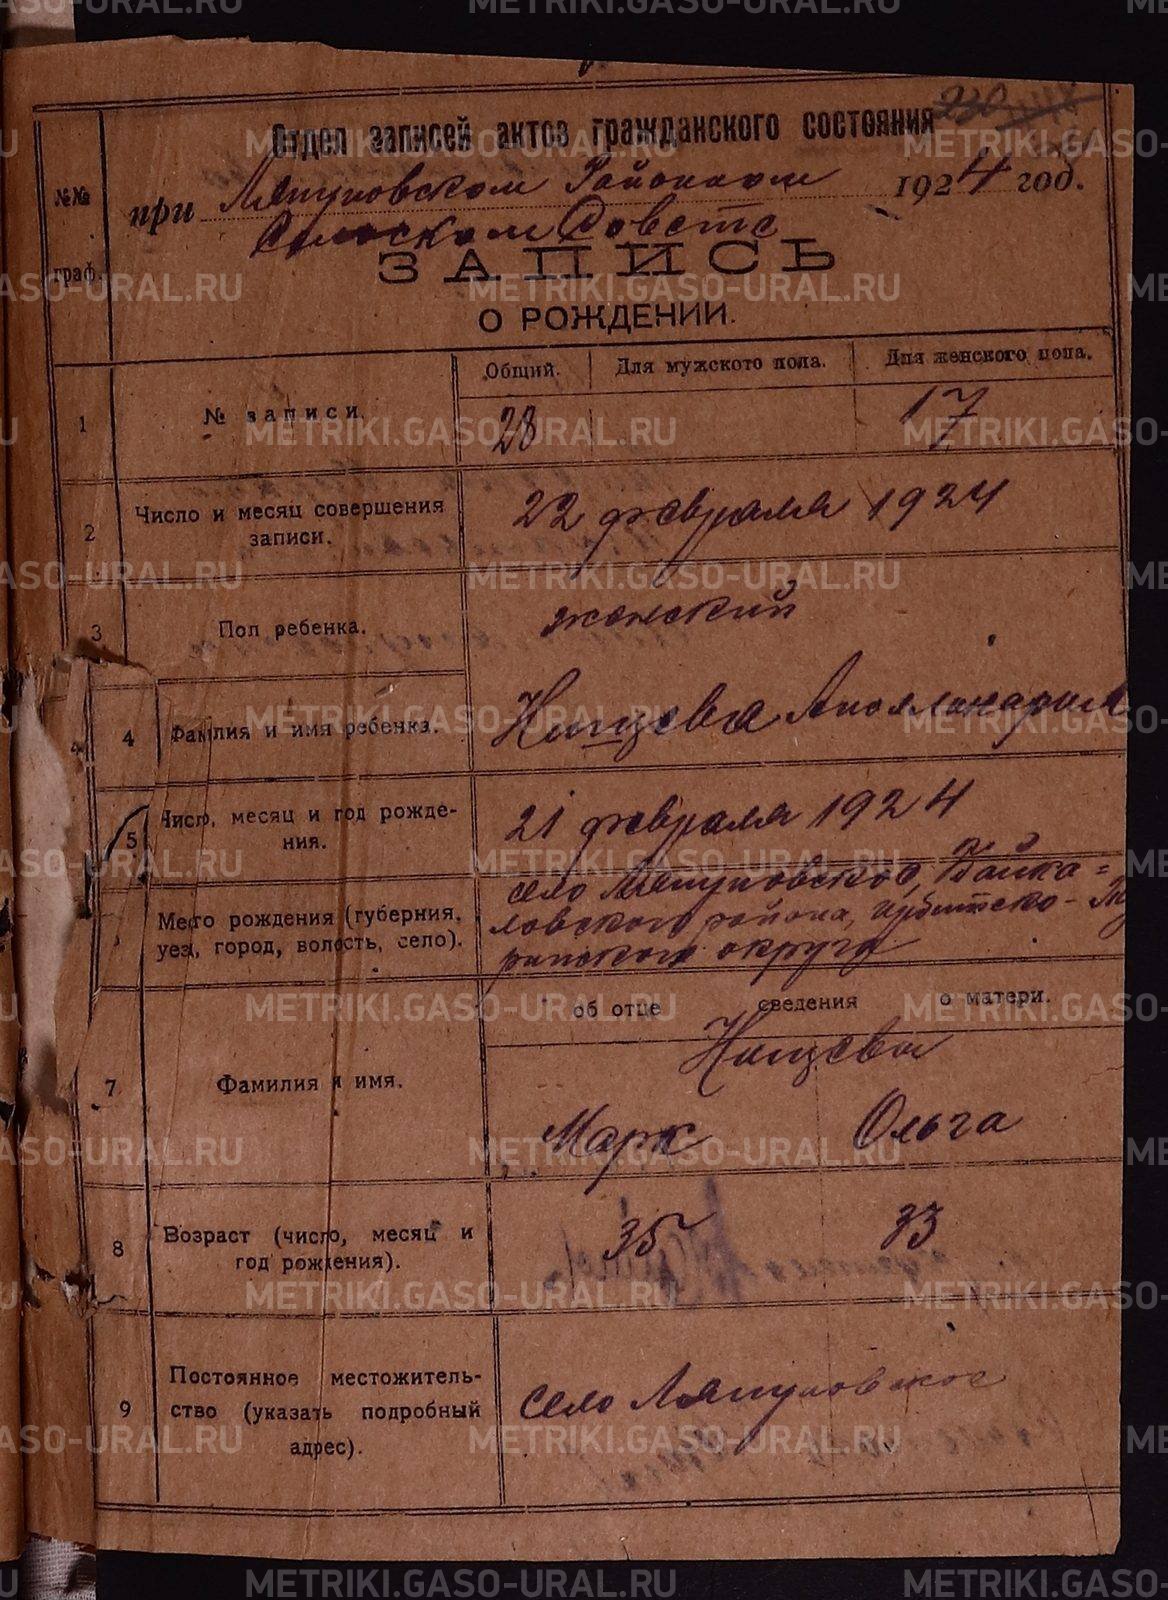 230
Отдел записей актов гражданского состояния
№№
граф.
при Ляпуновском Районном 1924 год.
Сельском Совете
ЗАПИСЬ
О РОЖДЕНИИ.
Общий. Для мужского пола. Для женского пола.
1 № записи. 28 17
2 Число и месяц совершения
записи.
22 февраля 1924
3 Пол ребенка. женский
4 Фамилия и имя ребенка. Нищева Аполлинария
5 Число, месяц и год рожде-
ния.
21 февраля 1924
Место рождения (губерния,
уезд, город, волость, село).
село Ляпуновское, Байка-
ловского района, Ирбитско-Ту
ринского округа
об отце сведения о матери.
7 Фамилия и имя.
Нищевы
Марк Ольга
8 Возраст (число, месяц и
год рождения).
35 33
9 Постоянное местожитель-
ство (указать подробный
адрес).
село Ляпуновское
METRIKI.GASO-URAL.RU